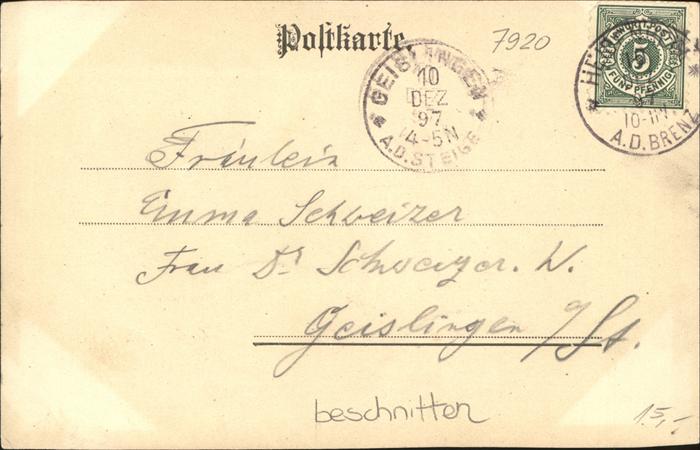 Postkarte.
7920
GEISLINGEN
10
DEZ
97
4-5N
A.D. STEIGE
5
FÜNF PFENNIG
97
A.D. BRENZ
Fräulein
Emma Schweizer
Frau Dr Schweizer. W.
Geislingen a/St.
beschnitten
15,-